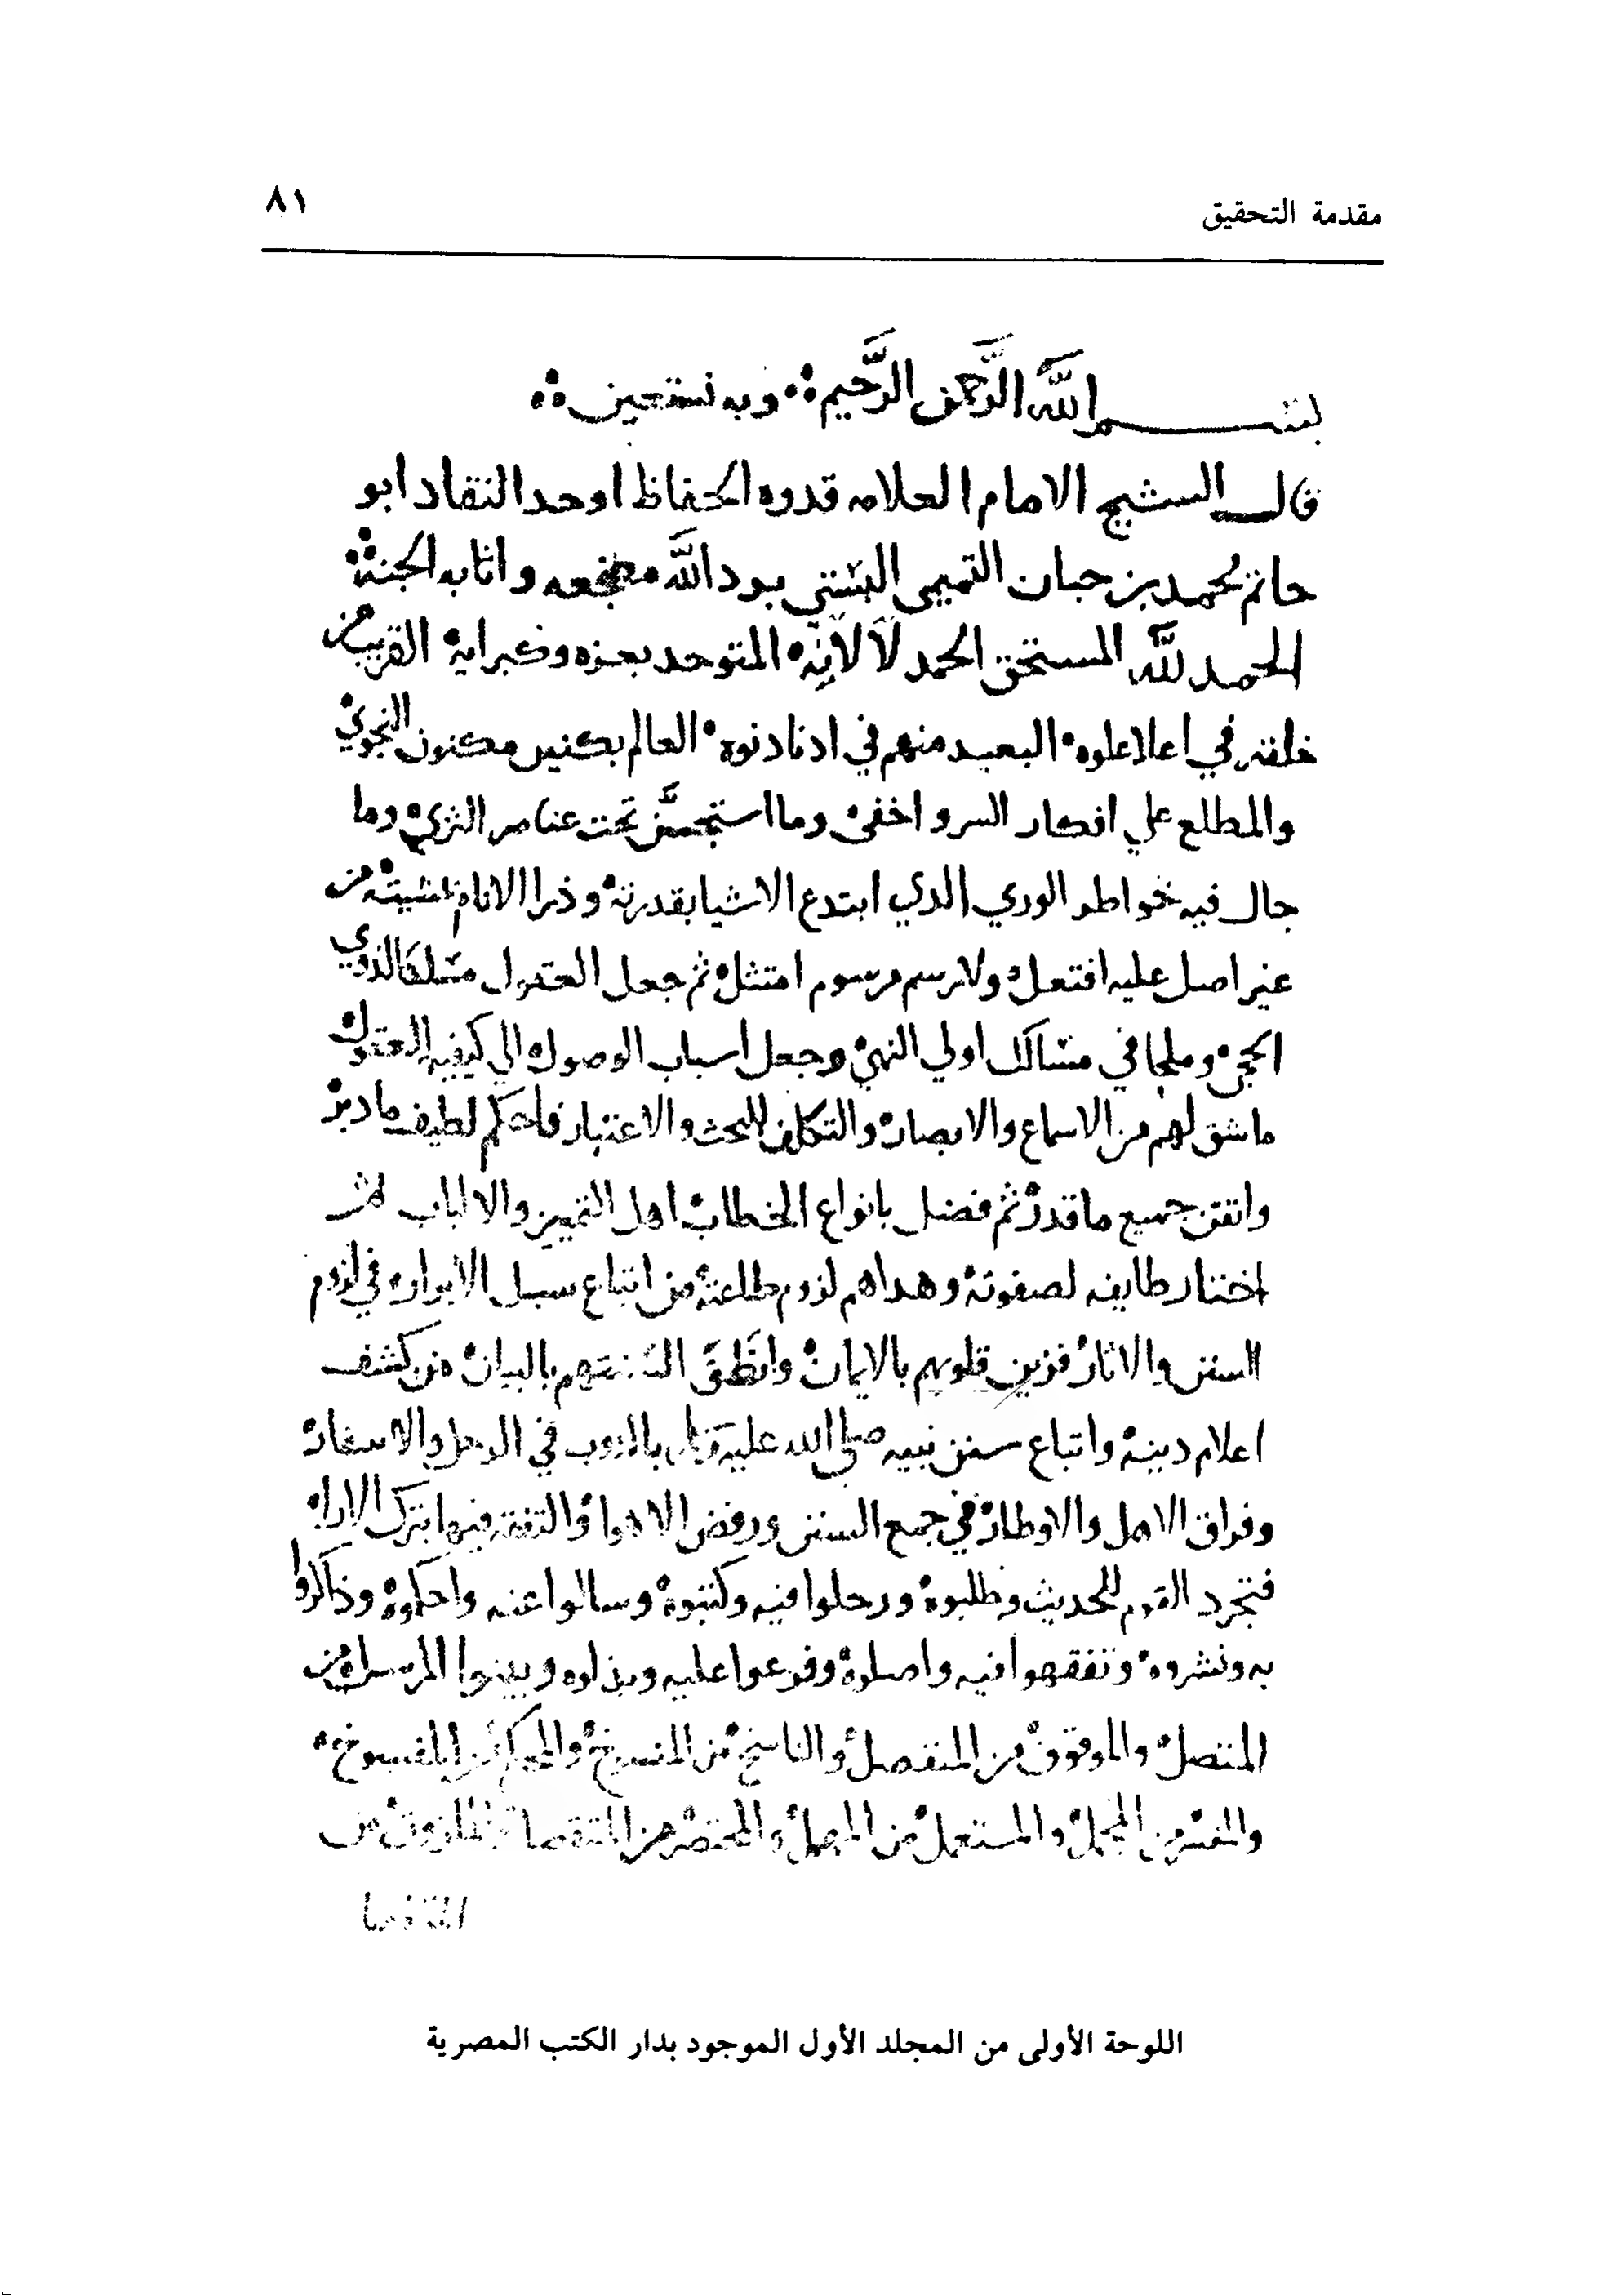 مقدمة التحقيق ٨١
بسم الله الرَّحمن الرَّحيم وبه نستعين
قال الشيخ الامام العلامه قدوه الحفاظ اوحد النقاد ابو
حاتم محمد بن حبان التميمي البستي برد الله مضجعه واثابه الجنة
الحمد لله المستحق الحمد لآلائه المتوحد بعزه وكبرايه القريب من
خلقه في اعلا علوه البعيد منهم في ادنا دنوه العالم بكنين مكنون النجوي
والمطلع علي افكار السر واخفى وما استجن تحت عناصر الثري وما
جال فيه خواطر الوري الذي ابتدع الاشيا بقدرته وذرا الانام بمشيته من
غير اصل عليه افتعل ولا رسم مرسوم امتثل ثم جعل العقول مسلكا لذوي
الحجى وملجا في مسالك اولي النهى وجعل اسباب الوصول الي كيفيه العقول
ما شق لهم من الاسماع والابصار والتكلف للبحث والاعتبار فاحكم لطيف ما دبر
واتقن جميع ما قدر ثم فضل بانواع الخطاب اهل التمييز والالباب ثم
اختار طايفه لصفوته وهداهم لزوم طاعته من اتباع سبل الابرار في لزوم
السنن والاثار فزين قلوبهم بالايمان وانطَقَ السنتهم بالبيان من كشف
اعلام دينه واتباع سنن نبيه صلى الله عليه وسلم بالدوب في الرحل والاسفار
وفراق الاهل والاوطار في جمع السنن ورفض الاهوا والتفقه فيها بترك الارا
فتجرد القوم للحديث وطلبوه ورحلوا فيه وكتبوه وسالوا عنه واحكموه وذاكروا
به ونشروه وتفقهوا فيه واصلوه وفرعوا عليه وبذلوه وبينوا المرسل من
المتصل والموقوف من المنفصل والناسخ من المنسوخ والمحكم من المفسوخ
والمفسر من المجمل والمستعمل من المهمل والمختصر من المتقصا والملزوق من
المتفصا
اللوحة الأولى من المجلد الأول الموجود بدار الكتب المصرية